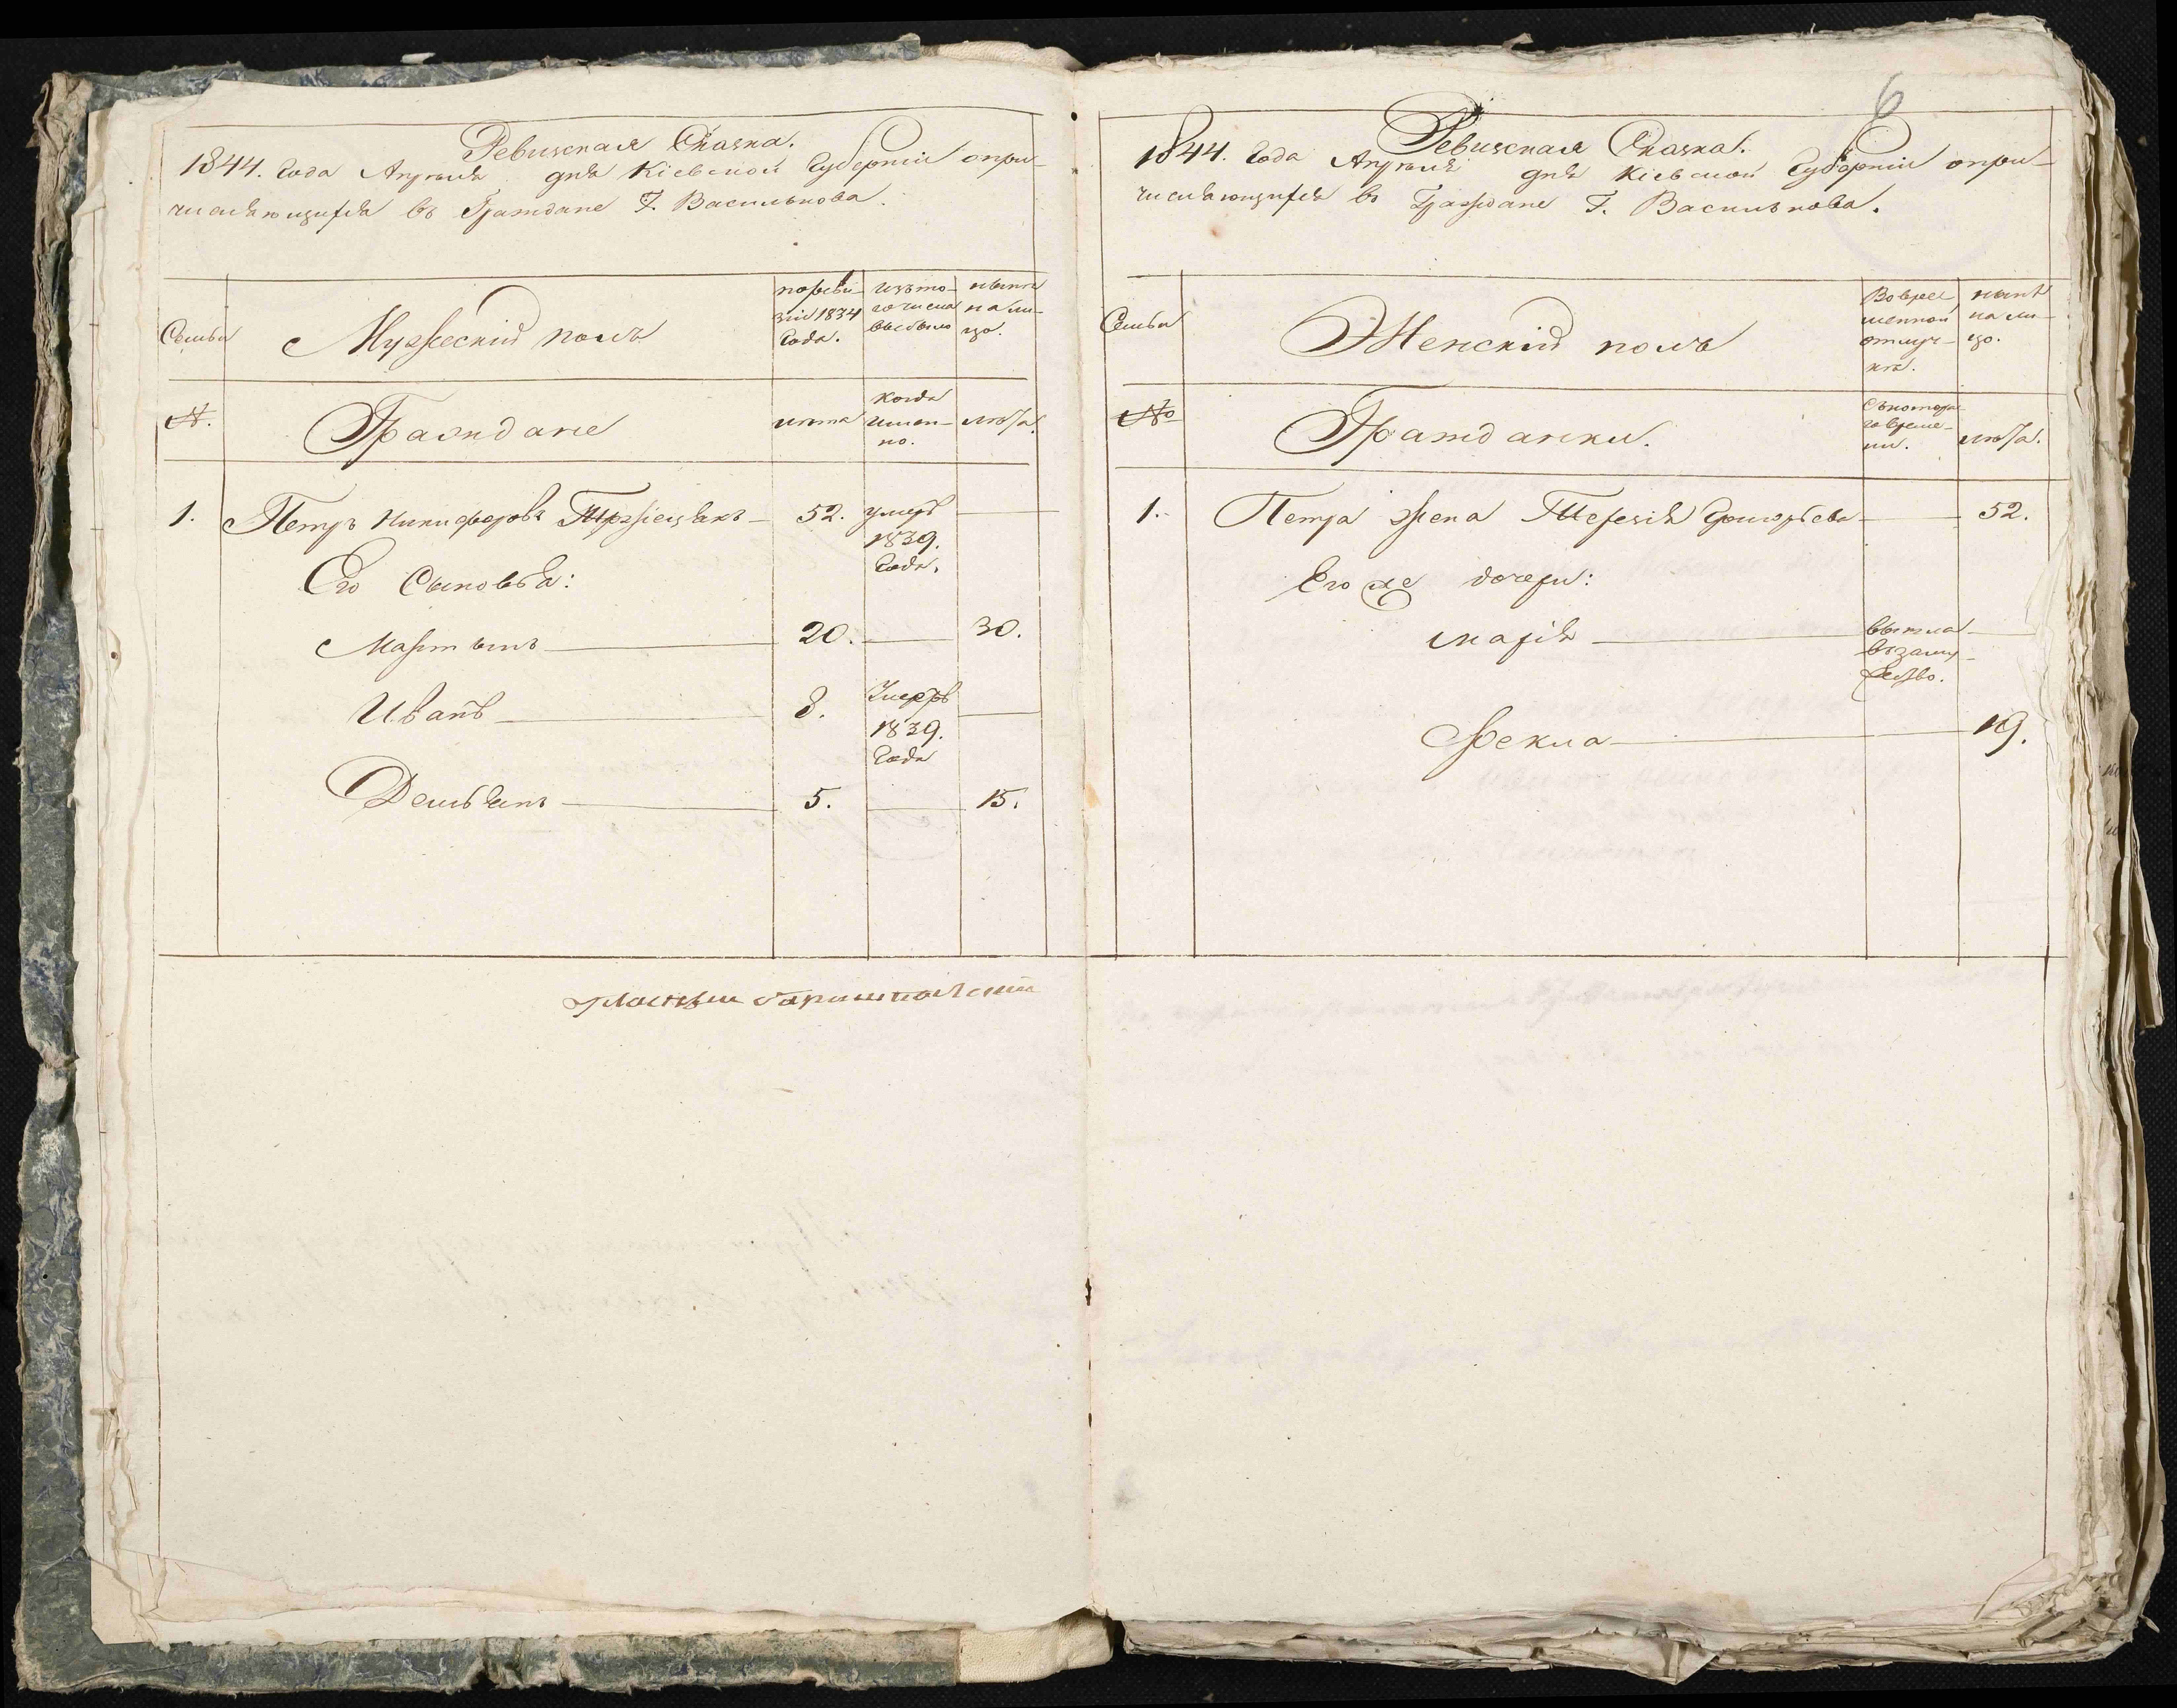 Ревизская Сказка.
1844. Года Апреля дня Кіевской Губерніи опри-
числяющихся въ Граждане Г. Василькова.
Семьи
Мужескій полъ
поревѣ-
зіи 1834
Года.
изъ то-
го числа
выбыло
нынѣ
на ли-
цо.
№.
Граждане
лѣта
когда
имен-
но.
лѣта.
1.
Петръ Никифоровъ
52.
умеръ
1839.
Года.
Его Сыновья:
Мартынъ
20.
30.
Иванъ
8.
Умеръ
1839.
Года
Демьянъ
5.
15.
6
Ревизская Сказка.
1844. Года Апрѣля дня Кіевской Губерніи опри-
числяющихся въ Граждане Г. Василькова.
Семьи
Женскій полъ
Вовре-
менной
отлуч-
кѣ.
нынѣ
на ли-
цо.
№
Гражданки.
Съкотора-
го време-
ни.
лѣта.
1.
Петра жена Терезія Григорьева
52.
Его же дочери:
Марія
вышла
въ заму-
жество.
Фекла
19.